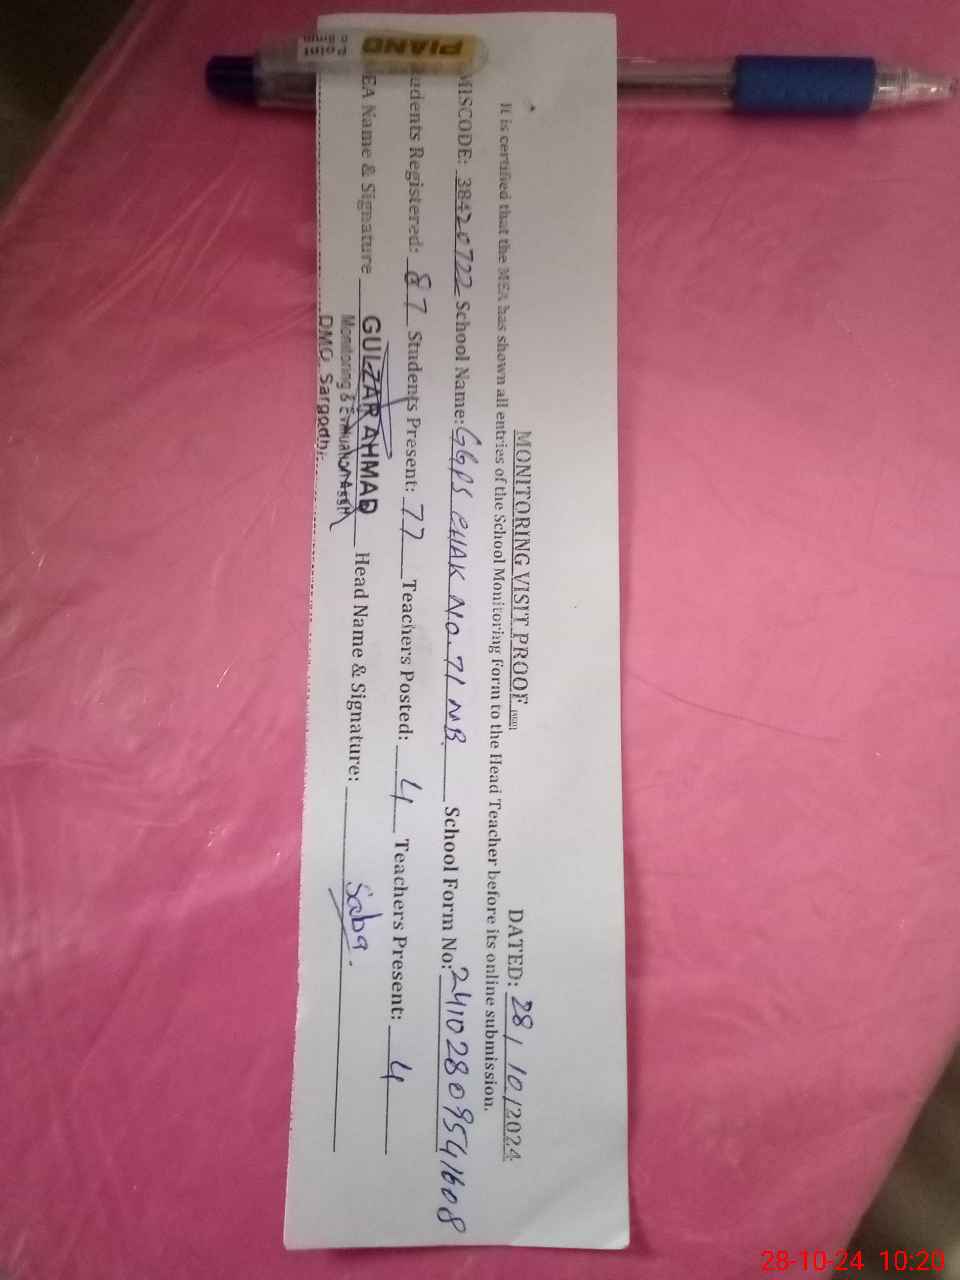 MONITORING VISIT PROOF
DATED: 28/10/2024
It is certified that the MEA has shown all entries of the School Monitoring Form to the Head Teacher before its online submission.
MISCODE: 38420722 School Name: GGPS CHAK No. 71 NB. School Form No: 24102809541608
udents Registered: 87 Students Present: 77 Teachers Posted: 4 Teachers Present: 4
EA Name & Signature Head Name & Signature: Saba.
GULZAR AHMAD
Monitoring & Evaluation Asstt
DMO, Sargodh
PIANO
Point
28-10-24 10:20